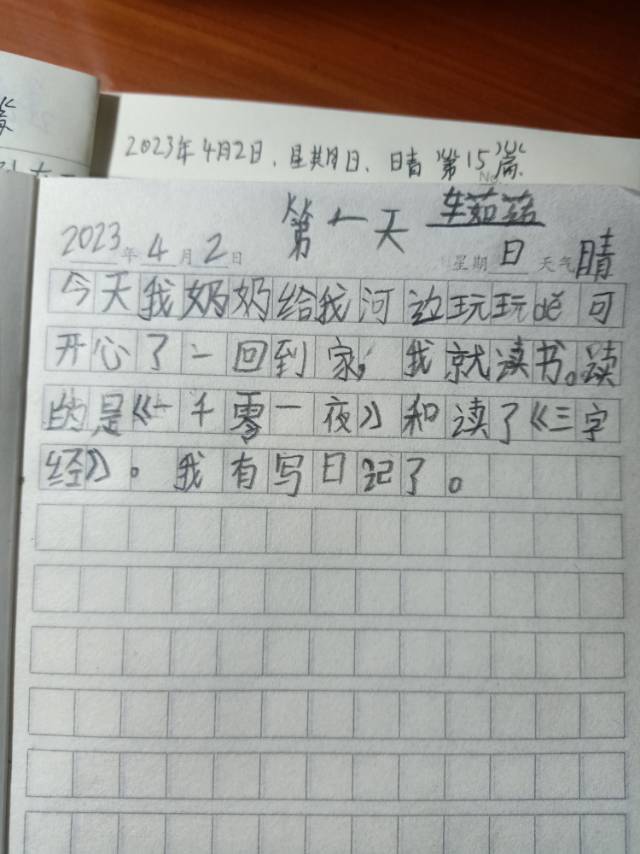 2023年4月2日，星期日、日青 第15篇.
第一天 车茹茹
2023年4月2日 星期日 天气晴
今天我奶奶给我河边玩玩地可
开心了二回到家，我就读书。读
的是《一千零一夜》和读了《三字
经》。我有写日记了。